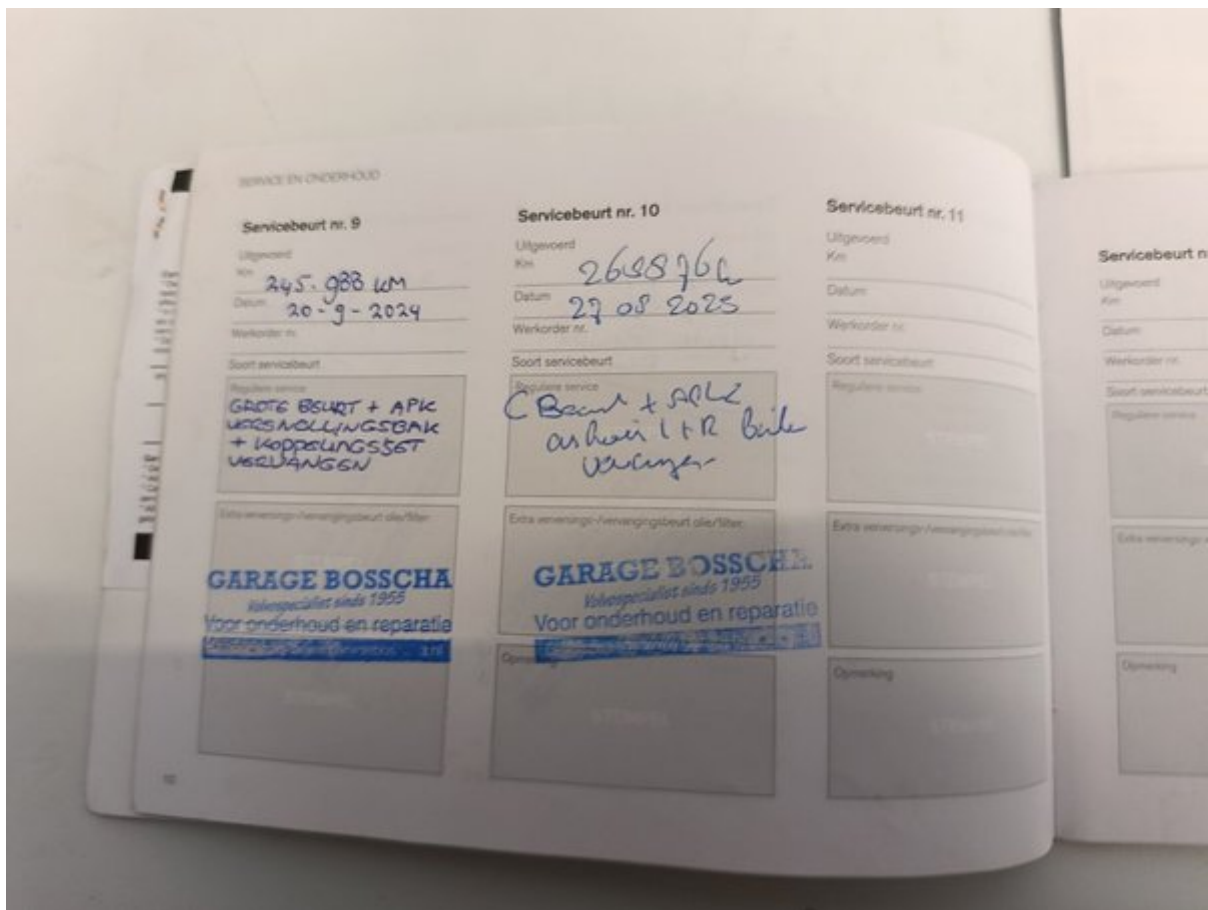 SERVICE EN ONDERHOUD
Servicebeurt nr. 9
Uitgevoerd
Km 245.988 KM
Datum 20-9-2024
Werkorder nr.
Soort servicebeurt
Reguliere service
GROTE BEURT + APK
VERSNELLINGSBAK
+ KOPPELINGSSET
VERVANGEN
Extra verversings-/vervangingsbeurt olie/filter:
GARAGE BOSSCHA
Volvospecialist sinds 1955
Voor onderhoud en reparatie
STEMPEL
10
Servicebeurt nr. 10
Uitgevoerd
Km
Datum 27 08 2025
Werkorder nr.
Soort servicebeurt
Reguliere service
C Beurt + APK
L + R
Extra verversings-/vervangingsbeurt olie/filter:
GARAGE BOSSCHA
Volvospecialist sinds 1955
Voor onderhoud en reparatie
Opmerking
STEMPEL
Servicebeurt nr. 11
Uitgevoerd
Km
Datum
Werkorder nr.
Soort servicebeurt
Reguliere service
STEMPEL
Extra verversings-/vervangingsbeurt olie/filter:
STEMPEL
Opmerking
STEMPEL
Servicebeurt n
Uitgevoerd
Km
Datum
Werkorder nr.
Soort servicebeurt
Reguliere service
Extra verversings-
Opmerking